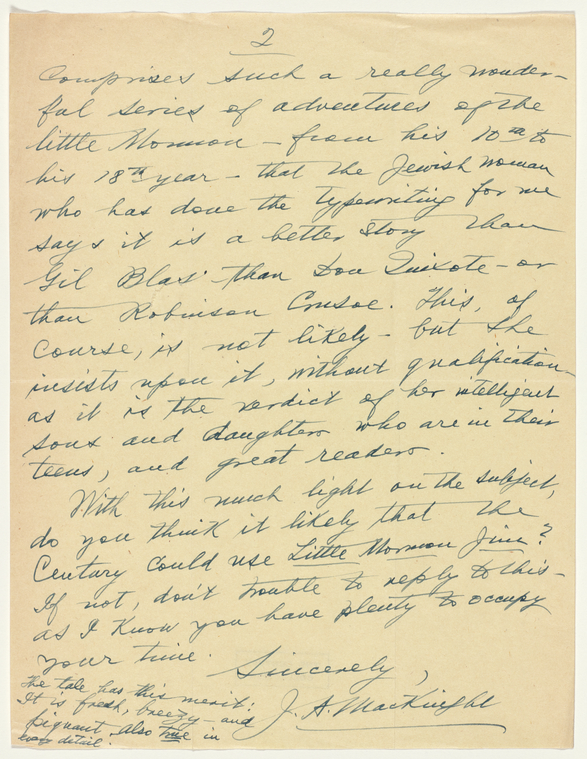 2
Comprises such a really wonder-
ful series of adventures of the
little Mormon - from his 10th to
his 18th year - that the Jewish woman
who has done the typewriting for me
says it is a better story than
Gil Blas' than Don Quixote - or
than Robinson Crusoe. This, of
course, is not likely - but she
insists upon it, without qualification -
as it is the verdict of her intelligent
sons and daughters who are in their
teens, and great readers.
With this much light on the subject,
do you think it likely that the
Century could use Little Mormon Jim?
If not, don't trouble to reply to this -
as I know you have plenty to occupy
your time.
Sincerely,
J. A. MacKnight
The tale has this merit:
It is fresh, breezy - and
piquant. Also true in
every detail.